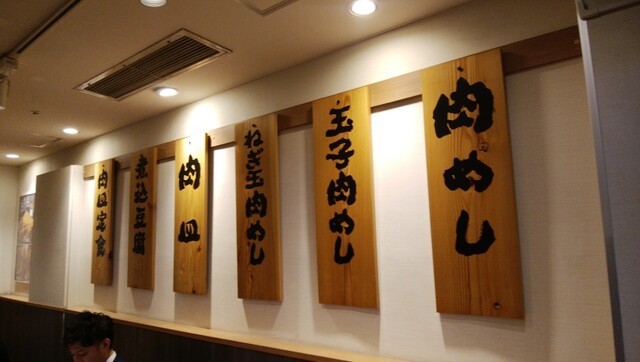 肉めし
玉子肉めし
ねぎ玉肉めし
肉皿
煮込豆腐
肉皿定食